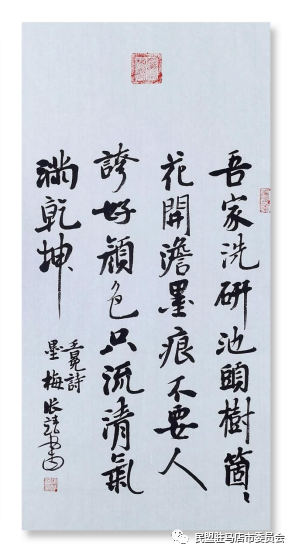 吾家洗研池頭樹箇〻
花開澹墨痕不要人
誇好顔色只流清氣
滿乾坤
王冕詩
墨梅
民盟驻马店市委员会